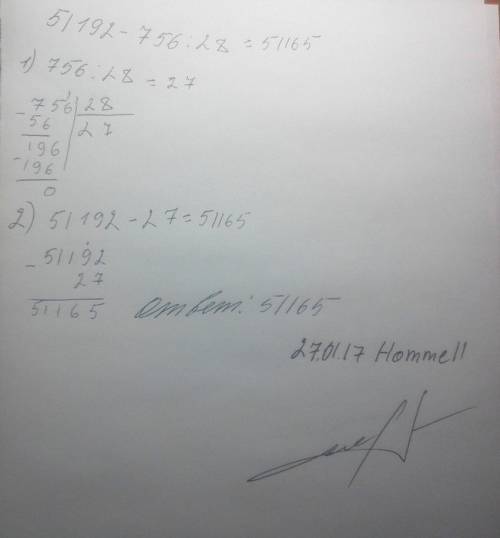 51192 - 756 : 28 = 51165
1) 756 : 28 = 27
- 756 | 28
56 | 27
196
- 196
0
2) 51192 - 27 = 51165
- 51192
27
51165
Ответ: 51165
27.01.17 Hommell